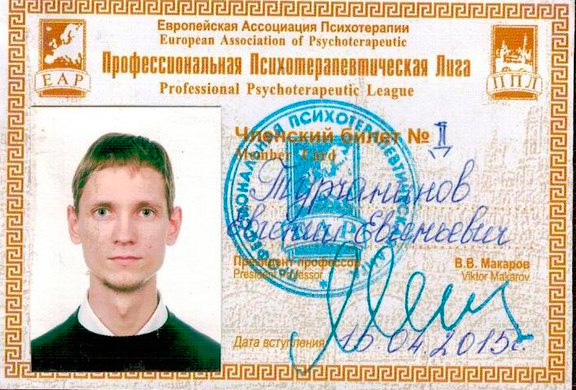 Европейская Ассоциация Психотерапии
European Association of Psychoterapeutic
Профессиональная Психотерапевтическая Лига
Professional Psychoterapeutic League
EAP
ППЛ
Членский билет № 1
Member Card
Турчанинов
Евгений Евгеньевич
Президент профессор
President Professor
В.В. Макаров
Viktor Makarov
Дата вступления 16 04 2015г.